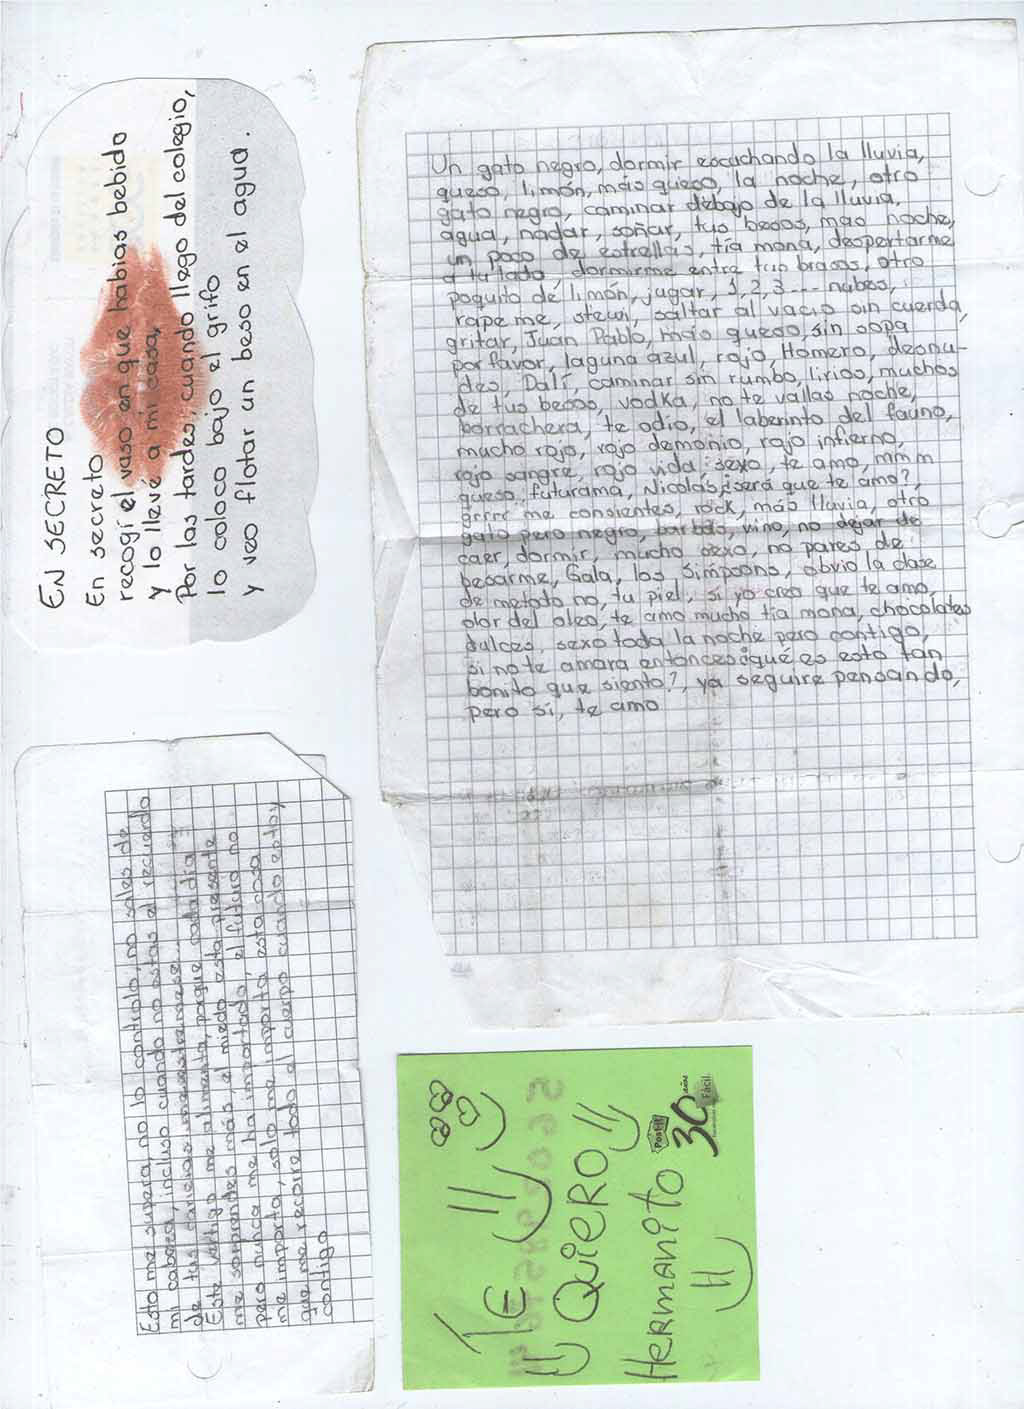 EN SECRETO
En secreto
recogí el vaso en que habías bebido
y lo llevé a mi casa,
Por las tardes, cuando llego del colegio,
lo coloco bajo el grifo
y veo flotar un beso en el agua.
Un gato negro, dormir escuchando la lluvia,
queso, limón, más queso, la noche, otro
gato negro, caminar debajo de la lluvia,
agua, nadar, soñar, tus besos, mas noche,
un poco de estrellas, tía mona, despertarme
a tu lado, dormirme entre tus brasos, otro
poquito de limón, jugar, 1, 2, 3 --- nubes,
rape me, stewi, saltar al vacio sin cuerda,
gritar, Juan Pablo, más queso, sin sopa
por favor, laguna azul, rojo, Homero, desnu-
des, Dalí, caminar sin rumbo, lirios, muchos
de tus besos, vodka, no te vallas noche,
borrachera, te odio, el laberinto del fauno,
mucho rojo, rojo demonio, rojo infierno,
rojo sangre, rojo vida, sexo, te amo, mmm
queso, futurama, Nicolás, ¿será que te amo?,
grrrr me consientes, rock, más lluvia, otro
gato pero negro, barbas, vino, no dejar de
caer, dormir, mucho sexo, no pares de
besarme, Gala, los simpsons, obvio la clase
de metodo no, tu piel, si yo creo que te amo,
olor del oleo, te amo mucho tia mona, chocolates
dulces, sexo toda la noche pero contigo,
si no te amara entonces ¿qué es esto tan
bonito que siento?, ya seguire pensando,
pero sí, te amo
Esto me supera, no lo controlo, no sales de
mi cabeza, incluso cuando no estas el recuerdo
de tus caricias me estremese...
Este vertigo me alimenta, porque cada día
me sorprendes más, el miedo esta presente
pero nunca me ha importado, el futuro no
me importa, solo me importa esta cosa
que me recorre todo el cuerpo cuando estoy
contigo
TE
QUIERO
HERMANITO
Post-it
30 años
Fácil